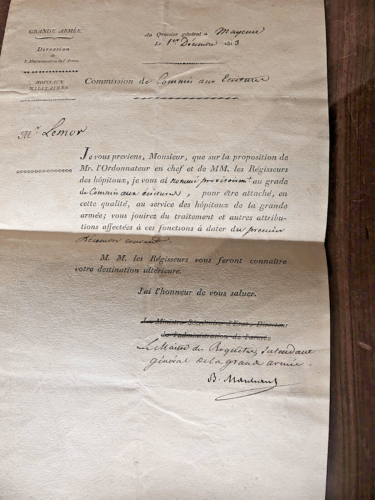 GRANDE ARMÉE.
Direction
de
l'Administration de l'Armée.
HÔPITAUX
MILITAIRES.
Au Quartier général à Mayence
le 1er Décembre 1813
Commission de Commis aux écritures
Mr. Lemor
Je vous previens, Monsieur, que sur la proposition de
Mr. l'Ordonnateur en chef et de MM. les Régisseurs
des hôpitaux, je vous ai nommé provisoirement au grade
de Commis aux écritures, pour être attaché, en
cette qualité, au service des hôpitaux de la grande
armée; vous jouirez du traitement et autres attribu-
tions affectées à ces fonctions à dater du premier
Décembre courant.
M. M. les Régisseurs vous feront connaître
votre destination ultérieure.
J'ai l'honneur de vous saluer.
Le Ministre Secrétaire d'État, Directeur
de l'administration de l'armée.
Le Maitre des Requêtes, Intendant
général de la grande armée.